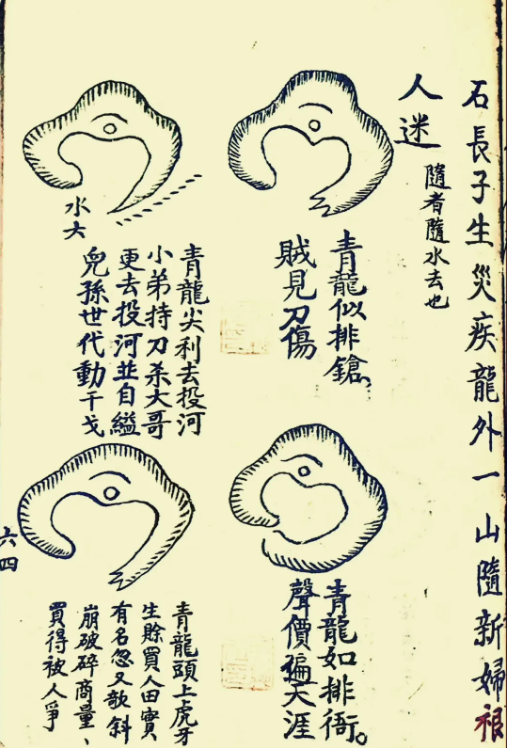 石長子生災疾龍外一山隨新婦被
人迷
隨者隨水去也
青龍似排鎗、
賊見刀傷
水大
青龍尖利去投河
小弟持刀杀大哥
更去投河並自縊
兒孫世代動干戈
青龍如排衙。
聲價徧天涯
青龍頭上虎牙
生賒買人田實
有名忽又欹斜
崩破碎商量、
買得被人爭
六四